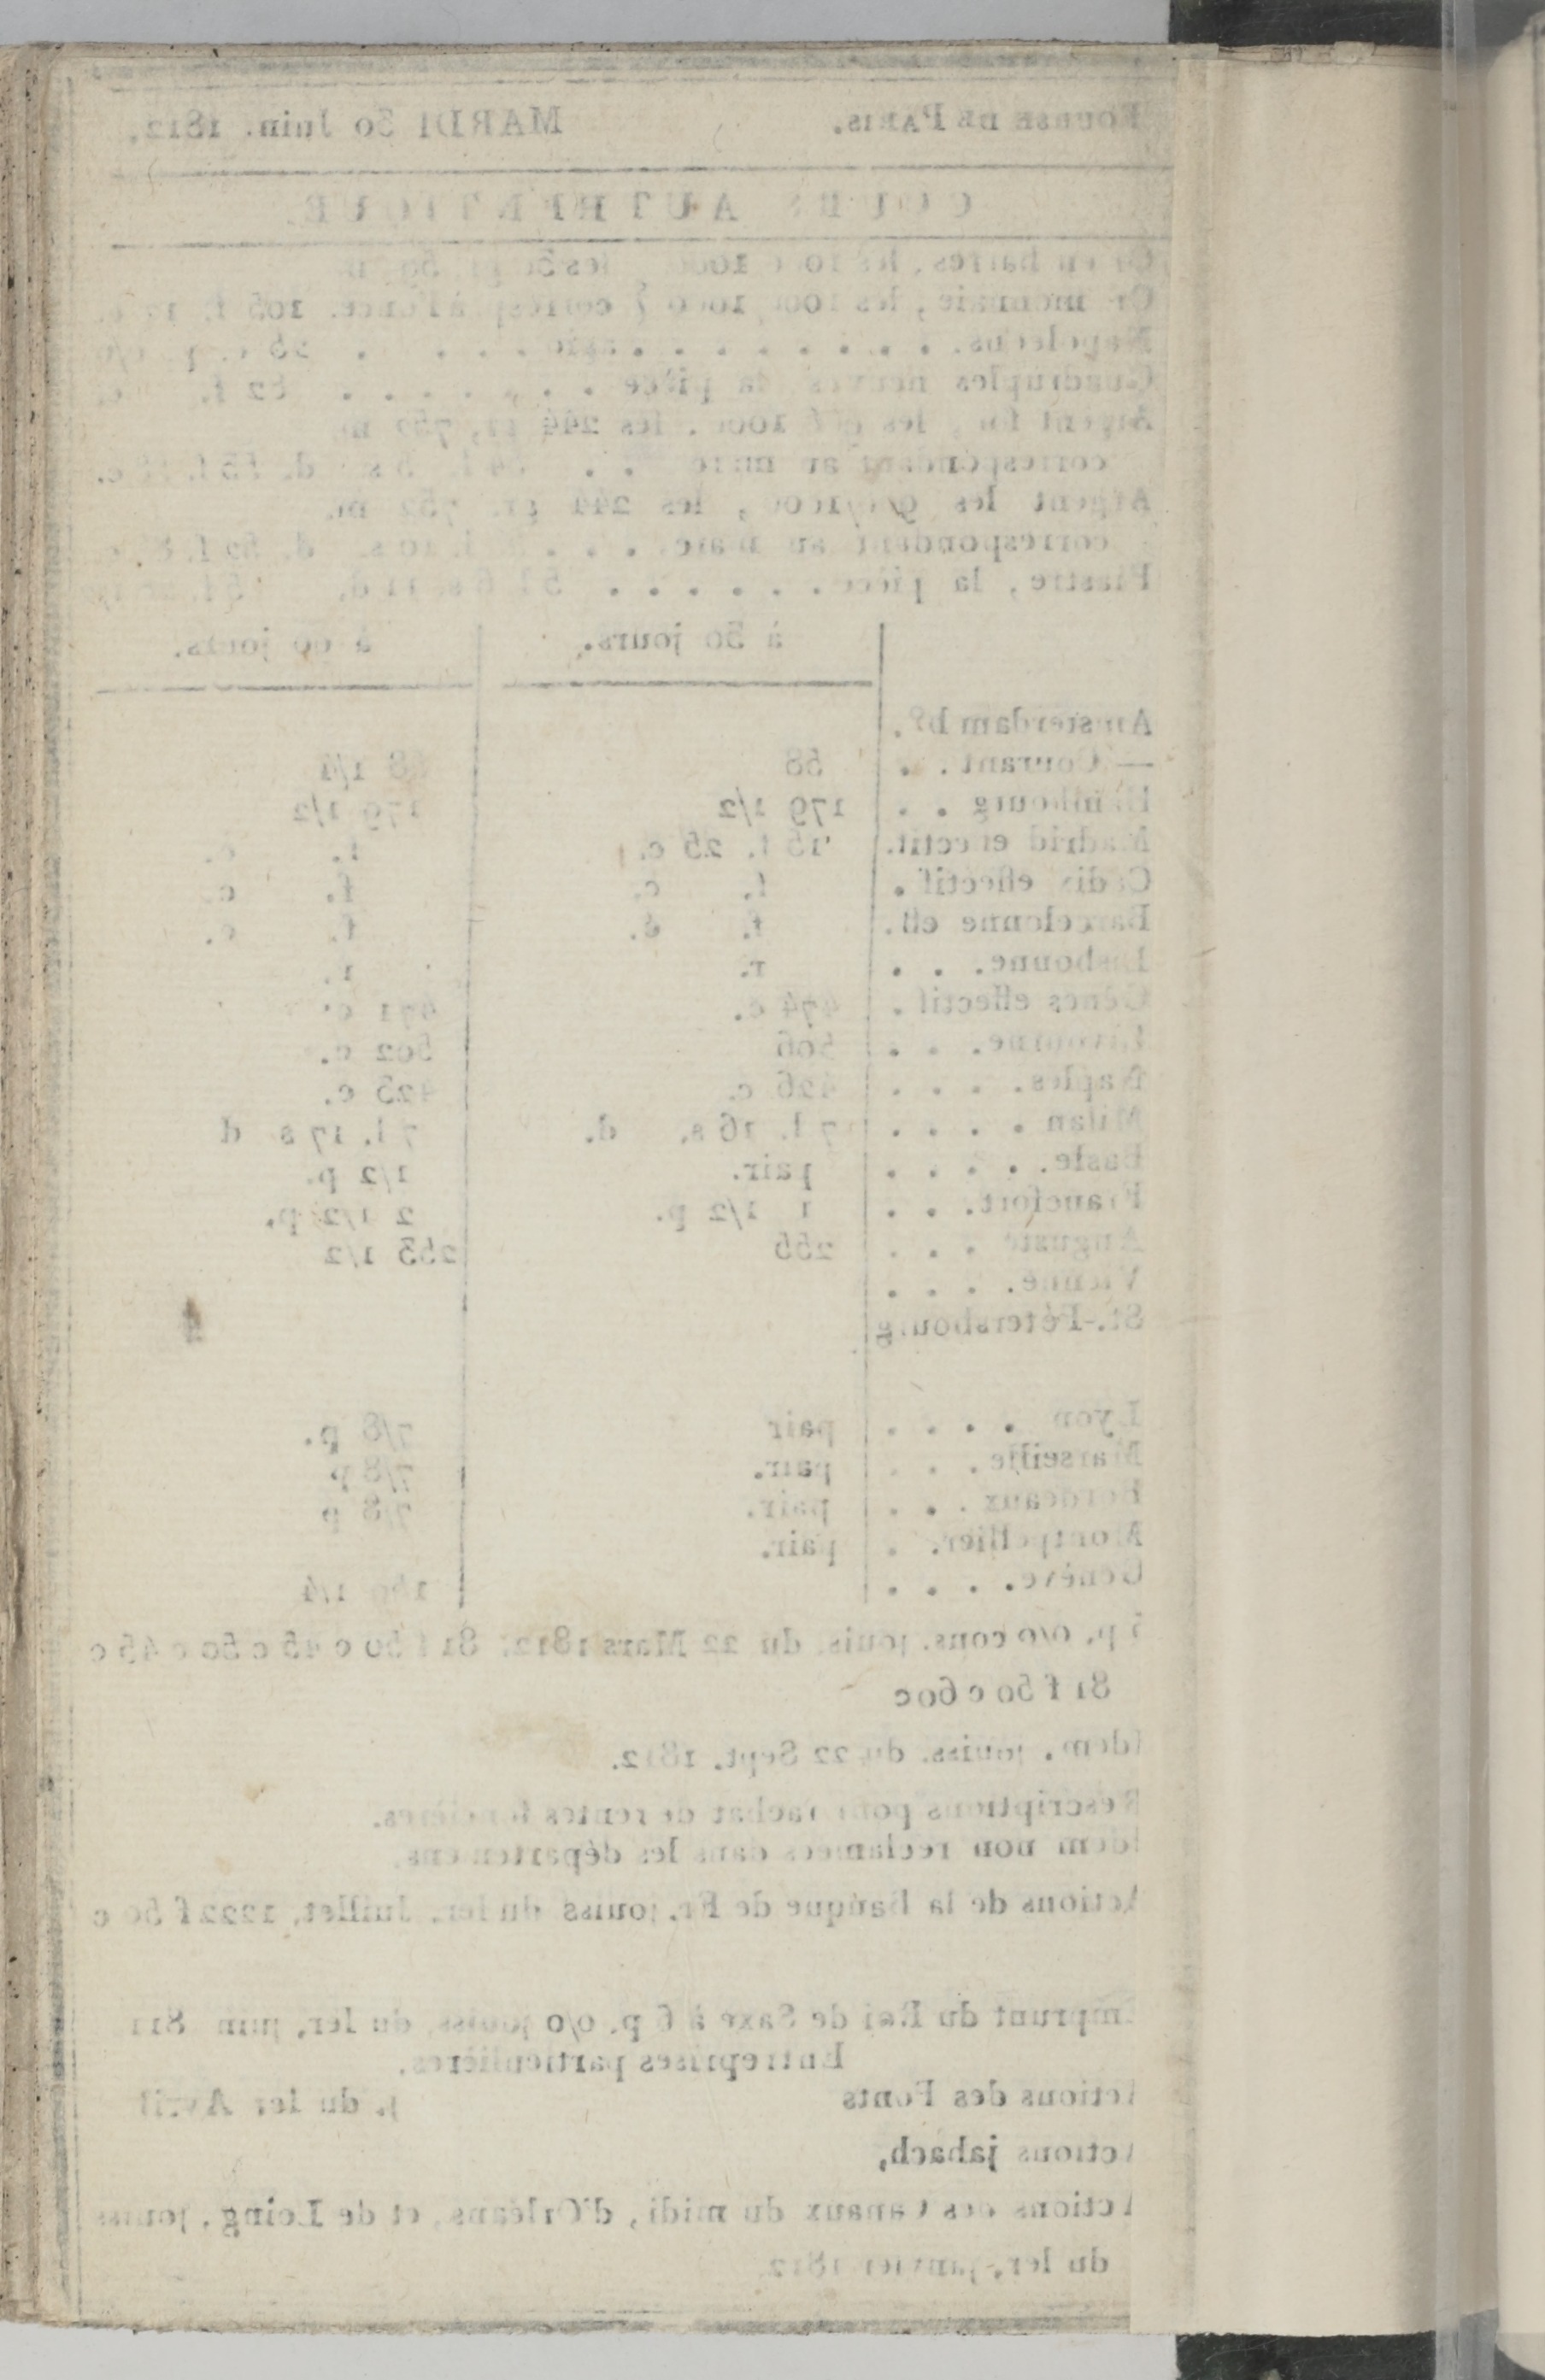 BOURSE DE PARIS. MARDI 30 Juin. 1812.
COURS AUTHENTIQUE
Or en barres, les 1000/1000, les
Or monnaie, les 1000/1000 corresp. à l'once. 105 f. c.
Napoléons.
Quadruples neuves, la pièce 82 f. c.
Argent les 1000, les 244 gr. 752 m.
correspondent au marc s. d. f. c.
Argent les les 244 gr. 752 m.
correspondent au marc. 10 s. d. f.
Piastre, la pièce
à 30 jours. à 90 jours.
Amsterdam b°.
— Courant 58 58 1/4
Hambourg 179 1/2 179 1/2
Madrid effectif. 15 f. 25 c. f. c.
Cadix effectif. f. c. f. c.
Barcelonne eff. f. c. f. c.
Lisbonne. r. r.
Gênes effectif. 474 c. 471 c.
Livourne. 506 502 c.
Naples. 426 c. 423 c.
Milan 7 l. 16 s. d. 7 l. 17 s d
Basle. pair. 1/2 p.
Francfort. 1 1/2 p. 2 1/2 p.
Auguste 255 253 1/2
Vienne.
St.-Pétersbourg
Lyon pair 7/8 p.
Marseille. pair. 7/8 p
Bordeaux pair. 7/8 p
Montpellier. pair.
Genève. 160 1/4
5 p. o/o cons. jouis. du 22 Mars 1812, 81 f 50 c 45 c 50 c 45 c
81 f 50 c 60 c
Idem. jouiss. du 22 Sept. 1812.
Rescriptions pour rachat de rentes foncières.
Idem non réclamées dans les départemens.
Actions de la Banque de Fr. jouiss du 1er. Juillet, 1222 f 50 c
Emprunt du Roi de Saxe à 6 p. o/o jouiss, du 1er, juin 1811
Entreprises particulières.
Actions des Ponts j. du 1er Avril
Actions jabach,
Actions des Canaux du midi, d'Orléans, et de Loing, jouiss
du 1er, janvier 1812